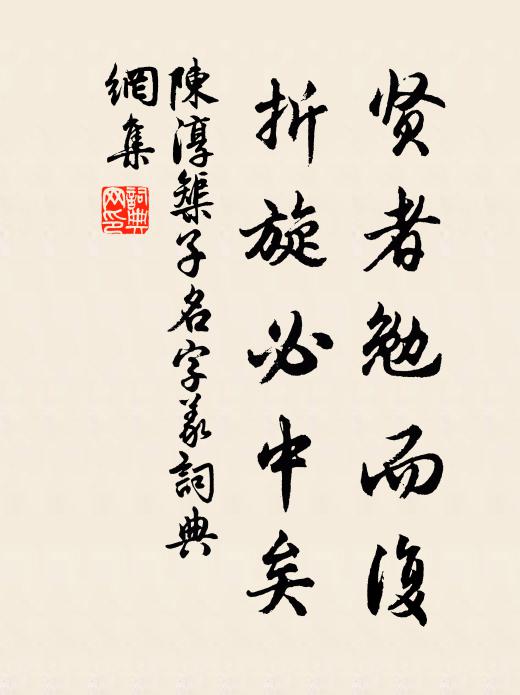 贤者勉而復
折旋必中矣
陳淳榘子名字義詞典
網集
詞典
网印